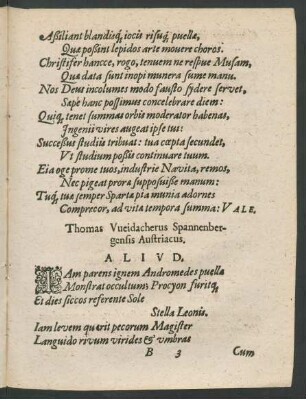 Aßiliant blandiq́, iocis risuq́, puellæ,
Quæ poßint lepidos arte movere choros.
Christifer hancce, rogo, tenuem ne respue Musam,
Quæ data sunt inopi munera sume manu.
Nos Deus incolumes modo fausto sydere servet,
Sæpe hanc poßimus concelebrare diem:
Quiq́, tenet summas orbis moderator habenas,
Ingenii vires augeat ipse tui:
Successus studiis tribuat: tua cœpta secundet,
Vt studium poßis continuare tuum.
Eia age prome tuos, industrie Navita, remos,
Nec pigeat proræ supposuisse manum:
Tuq́, tuæ semper Spartæ pia munia adornes
Comprecor, ad vitæ tempora summa: VALE.
Thomas Vueidacherus Spannenber-
gensis Austriacus.
ALIVD.
IAm parens ignem Andromedes puellæ
Monstrat occultum: Procyon furitq́,
Et dies siccos referente Sole
Stella Leonis.
Iam levem quærit pecorum Magister
Languido rivum virides & vmbras
B 3 Cum